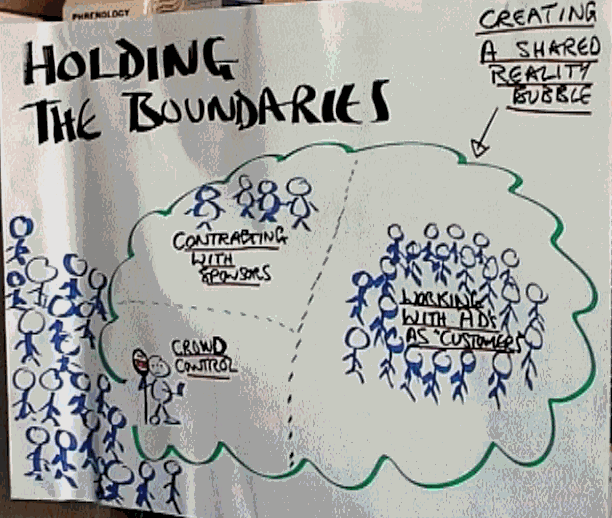 PHRENOLOGY
HOLDING
THE BOUNDARIES
CREATING
A SHARED
REALITY
BUBBLE
CONTRACTING
WITH
SPONSORS
WORKING
WITH HDs
AS "CUSTOMERS"
CROWD
CONTROL